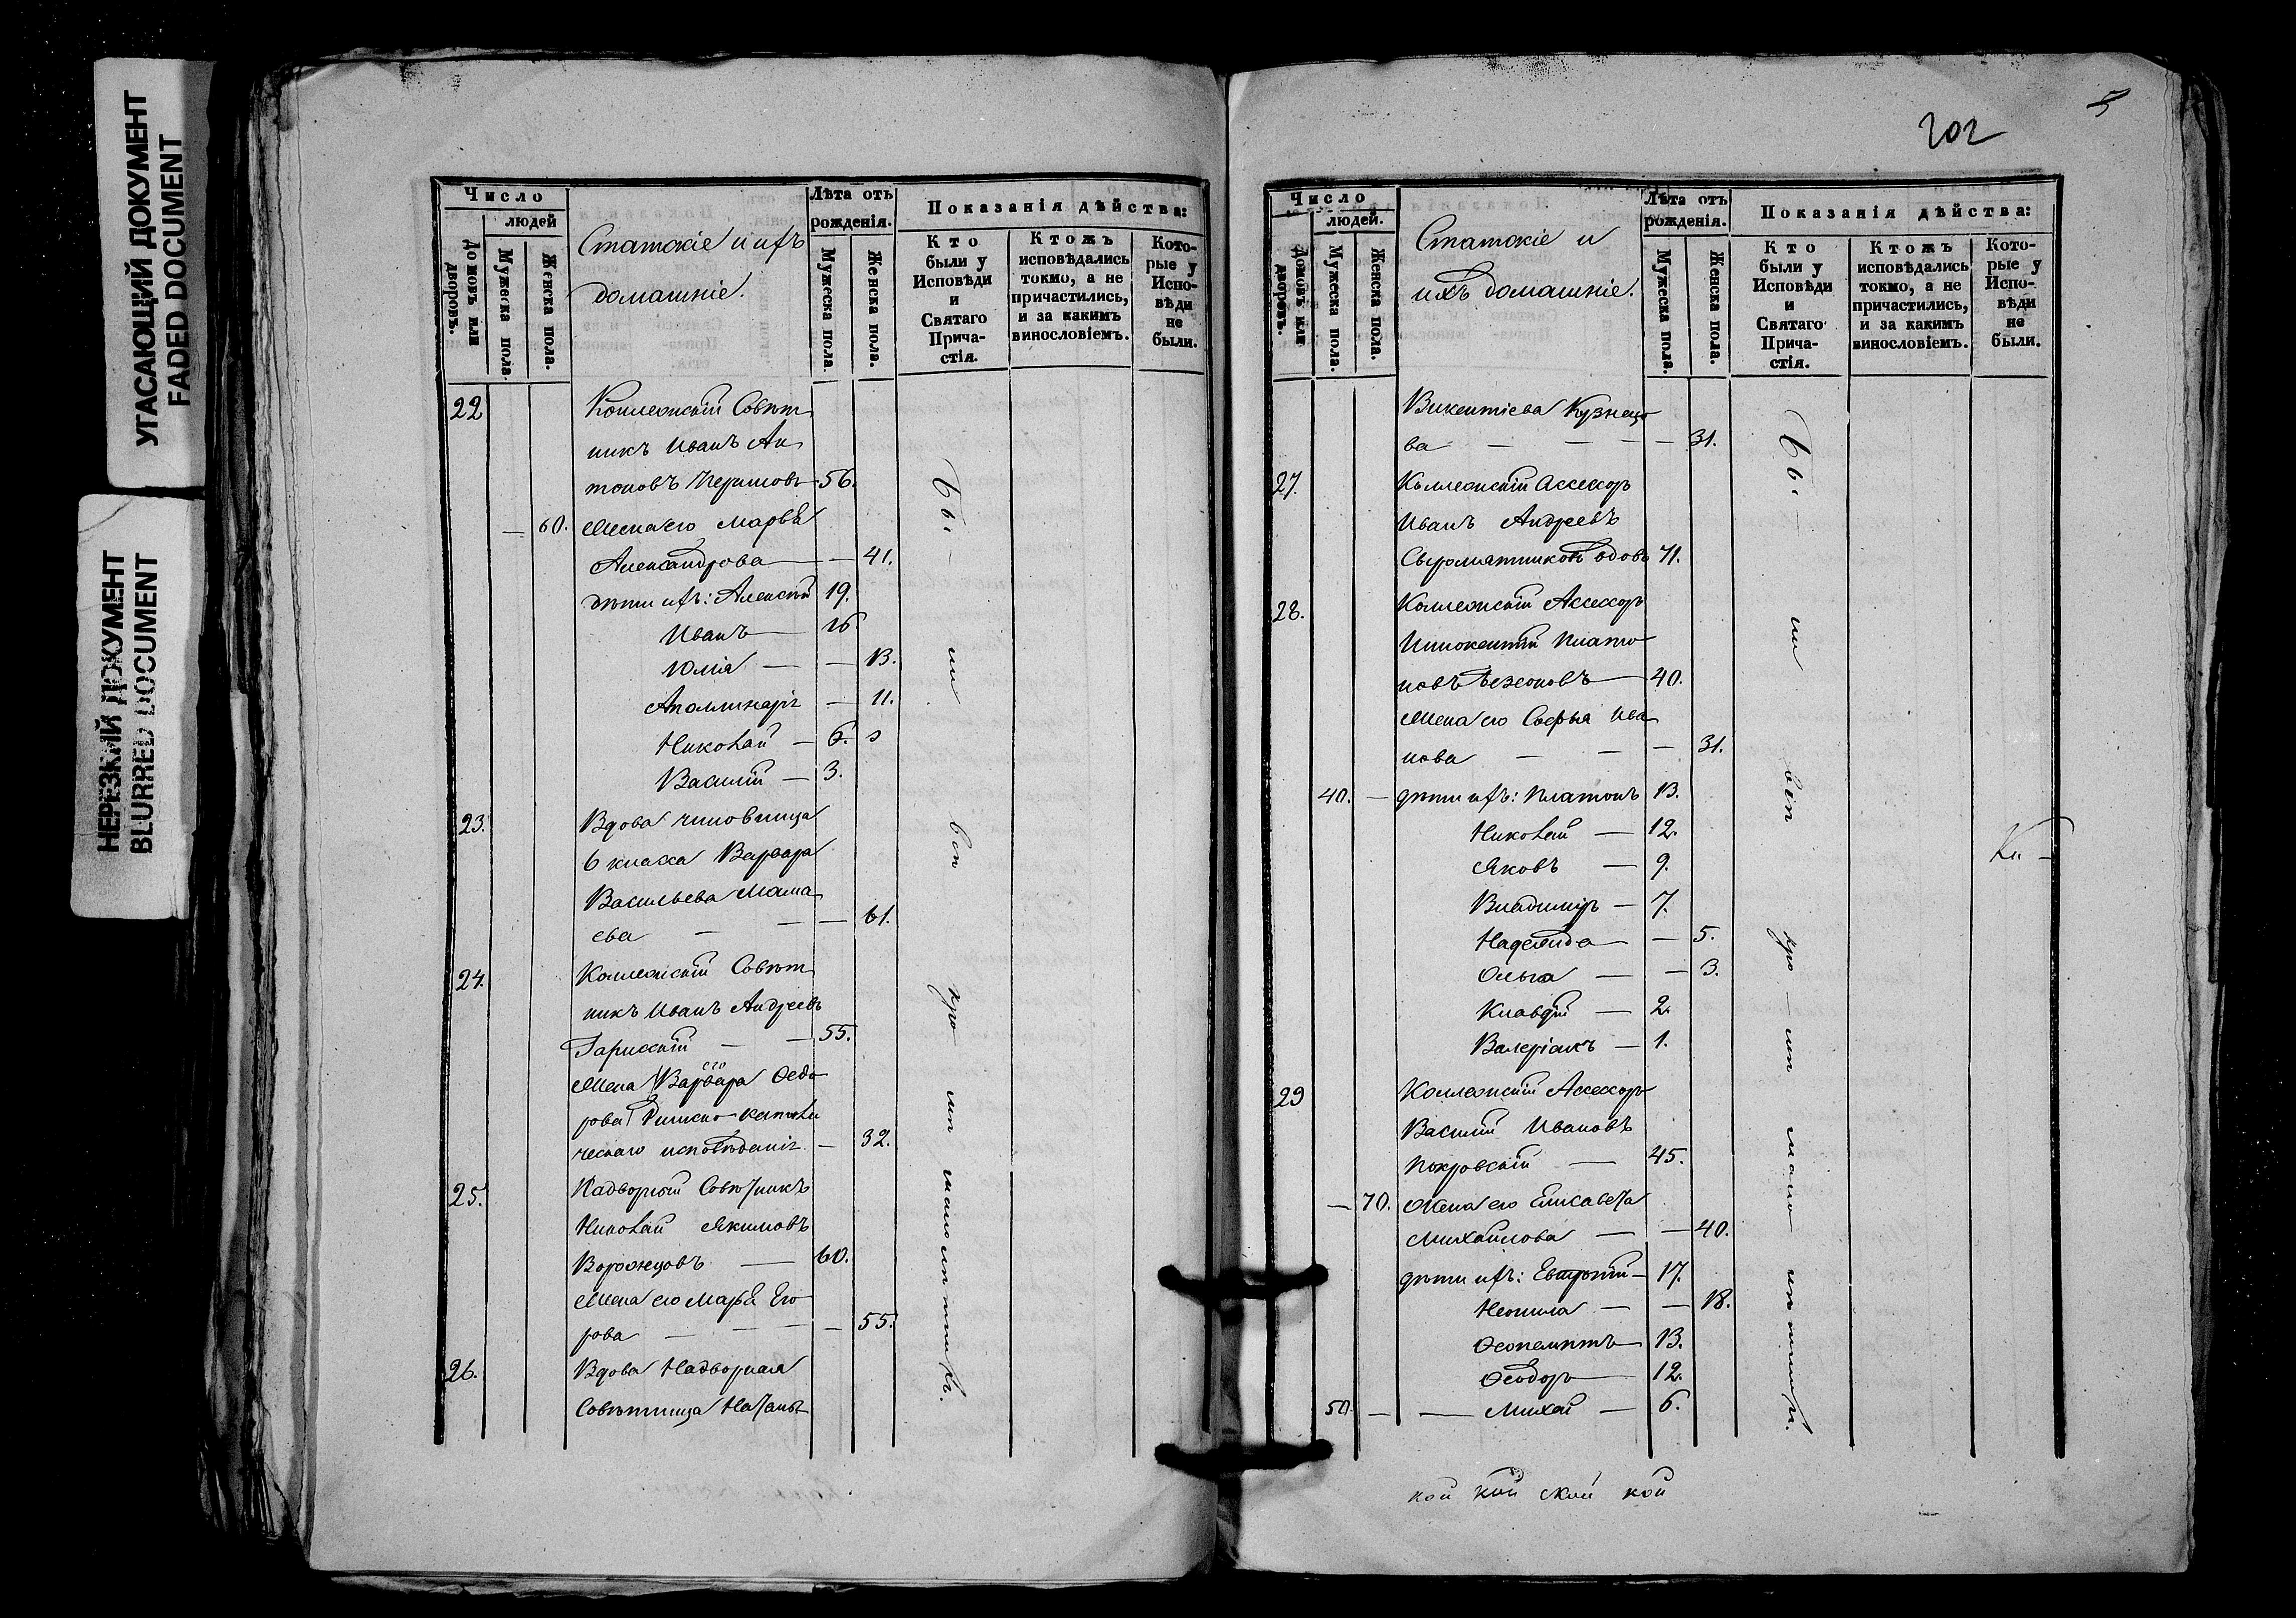 УГАСАЮЩИЙ ДОКУМЕНТ
FADED DOCUMENT
НЕРЕЗКИЙ ДОКУМЕНТ
BLURRED DOCUMENT
Число
людей
Домовъ или дворовъ.
Мужеска пола.
Женска пола.
Статскіе и ихъ
домашніе.
Лѣта отъ
рожденія.
Мужеска пола.
Женска пола.
Показанія дѣйства:
Кто
были у
Исповѣди
и
Святаго
Прича-
стія.
Ктожъ
исповѣдались
токмо, а не
причастились,
и за какимъ
винословіемъ.
Кото-
рые у
Испо-
вѣди
не
были.
22 Коллежскій Совѣт
никъ Иванъ Ан
тоновъ 56.
— 60. Жена его Марѳа
Александрова — 41.
дѣти ихъ: Алексѣй 19.
Иванъ — 16.
Юлія — — 13.
Аполлинарія — 11.
Николай — 6.
Василій — 3.
23. Вдова чиновница
6 класса Варвара
Васильева Мама
ева — — — 61.
24. Коллежскій Совѣт
никъ Иванъ Андреевъ
— — 55.
Жена его Варвара Ѳедо
рова Римско-католи
ческаго исповѣданія — 32.
25. Надворный Совѣтникъ
Николай Якимовъ
Ворожцовъ — 60.
Жена его Марья Его
рова — — — — 55.
26. Вдова Надворная
Совѣтница Наталья
Бы — ли
202
5
Число
людей.
Домовъ или дворовъ.
Мужеска пола.
Женска пола.
Статскіе и
ихъ домашніе.
Лѣта отъ
рожденія.
Мужеска пола.
Женска пола.
Показанія дѣйства:
Кто
были у
Исповѣди
и
Святаго
Прича-
стія.
Ктожъ
исповѣдались
токмо, а не
причастились,
и за какимъ
винословіемъ.
Кото-
рые у
Испо-
вѣди
не
были.
Викентіева Кузнецо
ва — — — — 31.
27. Коллежскій Ассесоръ
Иванъ Андреевъ
Сыромятниковъ вдовъ 71.
28. Коллежскій Ассесоръ
Иннокентій Плато
новъ — 40.
Жена его Софья Ива
нова — — — 31.
40. — дѣти ихъ: Платонъ 13.
Николай — 12.
Яковъ — 9.
Владиміръ — 7.
Надежда — — 5.
Ольга — — 3.
Клавдій — 2.
Валеріанъ — 1.
29 Коллежскій Ассесоръ
Василій Ивановъ
Покровскій — 45.
— 70. Жена его Елисавета
Михайлова — — 40.
дѣти ихъ: — 17.
Неонила — — 18.
Ѳеопемптъ 13.
Ѳеодоръ — 12.
50. — — Михаи — 6.
Бы — ли
кой кой ской кой